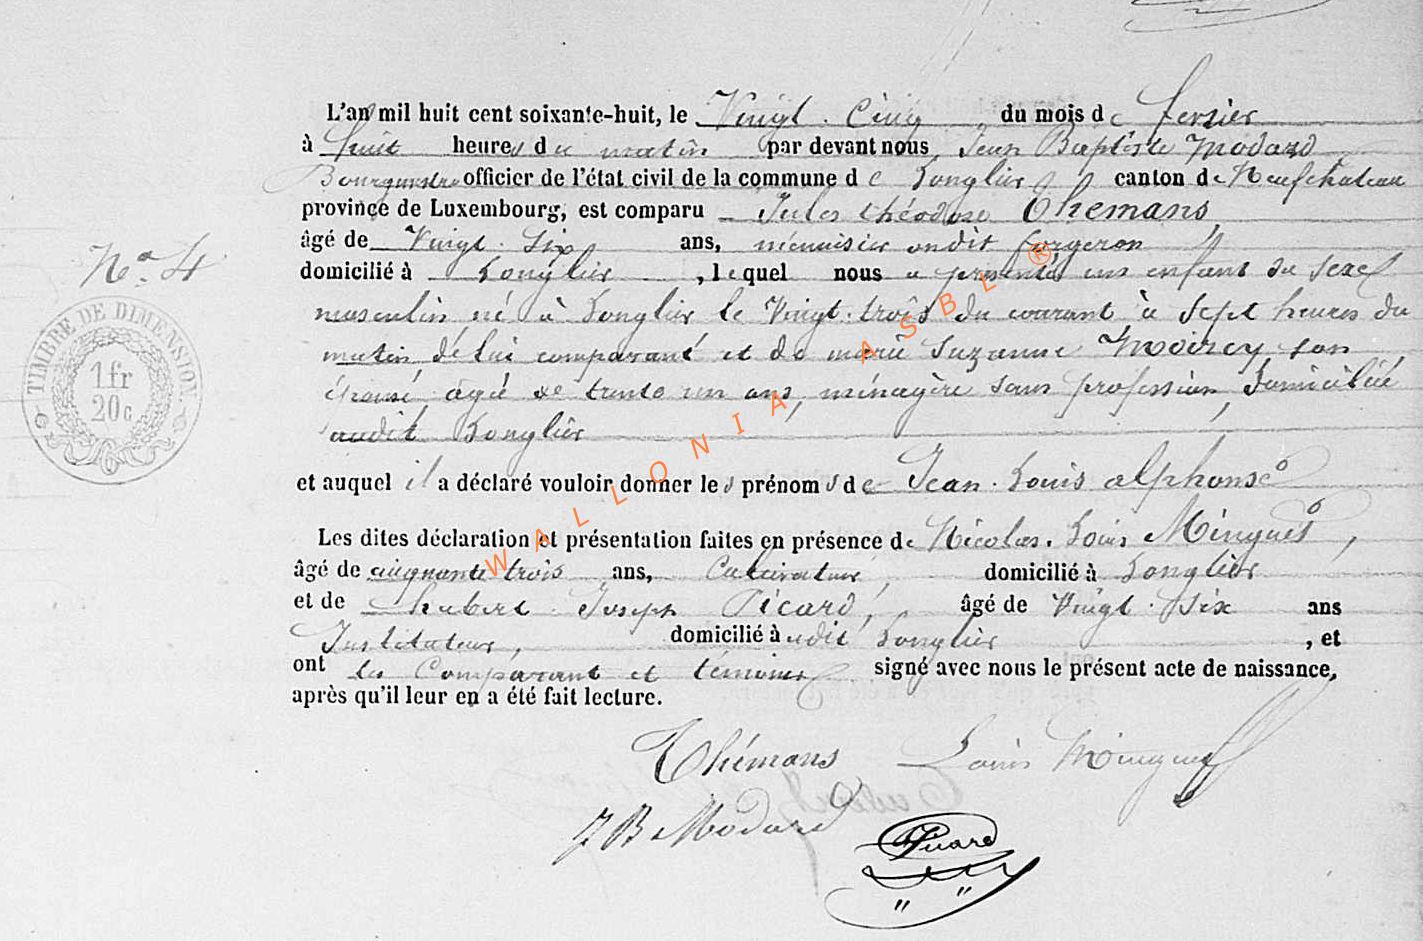 L'an mil huit cent soixante-huit, le Vingt. Cinq du mois de fevrier
à huit heures du matin par devant nous, Jean Baptiste Modard
Bourgmestre officier de l'état civil de la commune de Longlier canton de Neufchateau
province de Luxembourg, est comparu Jules théodore Thémans,
âgé de Vingt. Six ans, menuisier forgeron
N° 4
domicilié à Longlier, lequel nous a présenté un enfant du sexe
masculin né à Longlier le Vingt. trois du courant à sept heures du
matin, de lui comparant et de marie Suzanne Moircy, son
épouse agée de trente un ans, ménagère sans profession, domiciliée
audit Longlier
TIMBRE DE DIMENSION.
1 fr
20 c
et auquel il a déclaré vouloir donner les prénoms de Jean. Louis alphonse
Les dites déclaration et présentation faites en présence de Nicolas. Louis Minguet,
âgé de cinquante trois ans, Cultivateur, domicilié à Longlier
et de hubert Joseph Picard, âgé de Vingt. six ans
Instituteur, domicilié audit Longlier, et
ont les Comparant et témoins signé avec nous le présent acte de naissance,
après qu'il leur en a été fait lecture.
Thémans Louis Minguet
J B Modard
Picard
WALLONIA ASBL ®